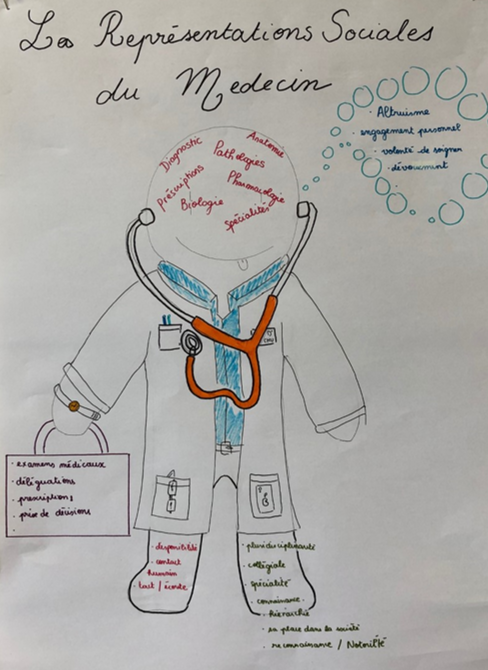 Les Représentations Sociales
du Medecin
Altruisme
engagement personnel
volonté de soigner
dévouement
Diagnostic
Anatomie
Pathologies
Prescriptions
Pharmacologie
Biologie
Spécialités
examens médicaux
délégations
prescriptions
prise de décisions
disponibilité
contact
humain
tact / écoute
pluridisciplinarité
collégiale
spécialité
connaissance
hiérarchie
sa place dans la société
reconnaissance / Notoriété